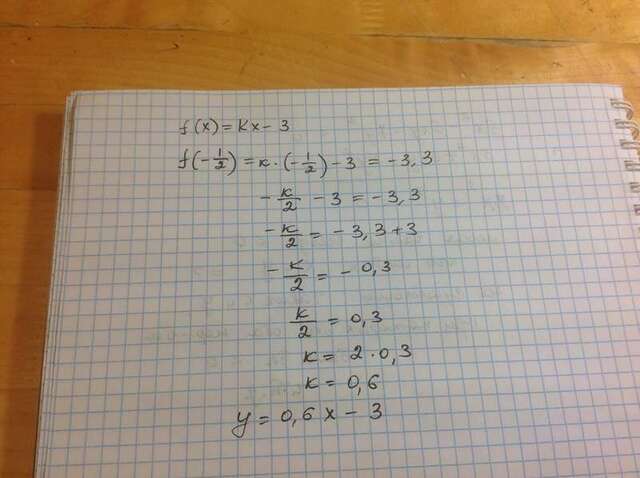 f(x) = Kx - 3
f(-1/2) = к · (-1/2) - 3 = -3,3
-к/2 - 3 = -3,3
-к/2 = -3,3 + 3
-к/2 = -0,3
к/2 = 0,3
к = 2 · 0,3
к = 0,6
y = 0,6 x - 3